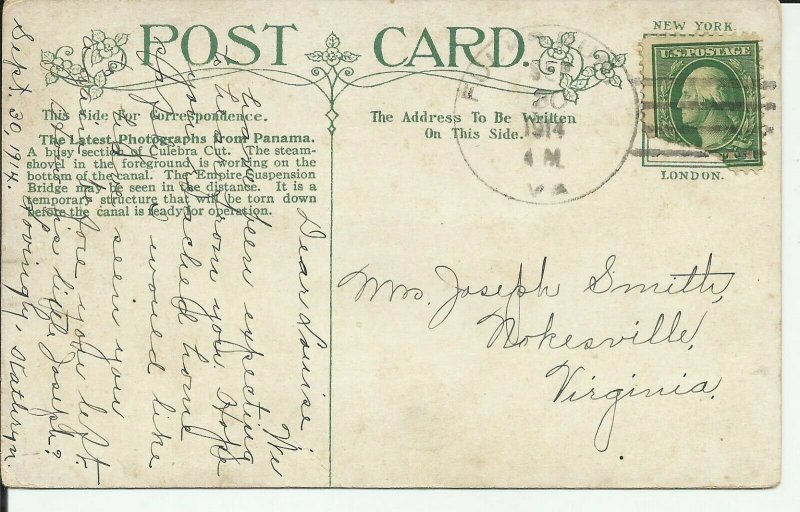 POST CARD.
NEW YORK.
U.S. POSTAGE
LONDON.
30
1914
VA
This Side For Correspondence.
The Latest Photographs from Panama.
A busy section of Culebra Cut. The steam-
shovel in the foreground is working on the
bottom of the canal. The Empire Suspension
Bridge may be seen in the distance. It is a
temporary structure that will be torn down
before the canal is ready for operation.
The Address To Be Written
On This Side.
Mrs. Joseph Smith,
Nokesville,
Virginia.
Dear Louise We
have been expecting
to hear from you. Hope
you reached home
safely. I would like
to have seen you
before you left.
How is little Joseph?
Lovingly, Kathryn.
Sept. 30, 1914.